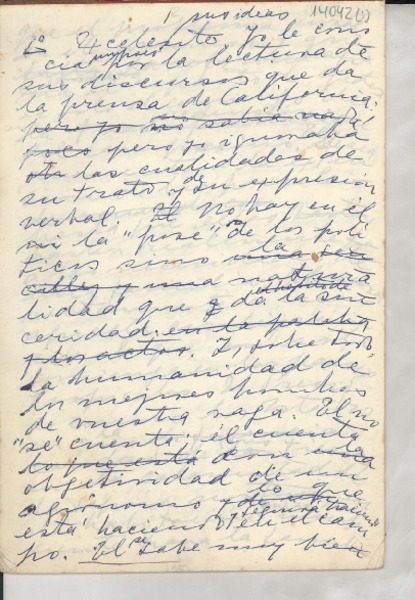 sus ideas 14042 (1)
1º Excelente. Yo le cono
cía por la lectura de
sus discursos que da
la prensa de California;
pero yo no sabía na
poco pero yo ignoraba
las cualidades de
su trato y de su expresión
verbal. No hay en él
ni la "pose" de los polí
ticos sino la
y una natura
lidad que da la sin
ceridad. en la palabra
y los actos. Y, sobre todo
la humanidad de
los mejores hombres
de nuestra raza. El no
"se" cuenta; él cuenta
lo que está con una
objetividad de un
agrónomo lo que
está haciendo y seguirá haciendo
en el cam
po. El sabe muy bien